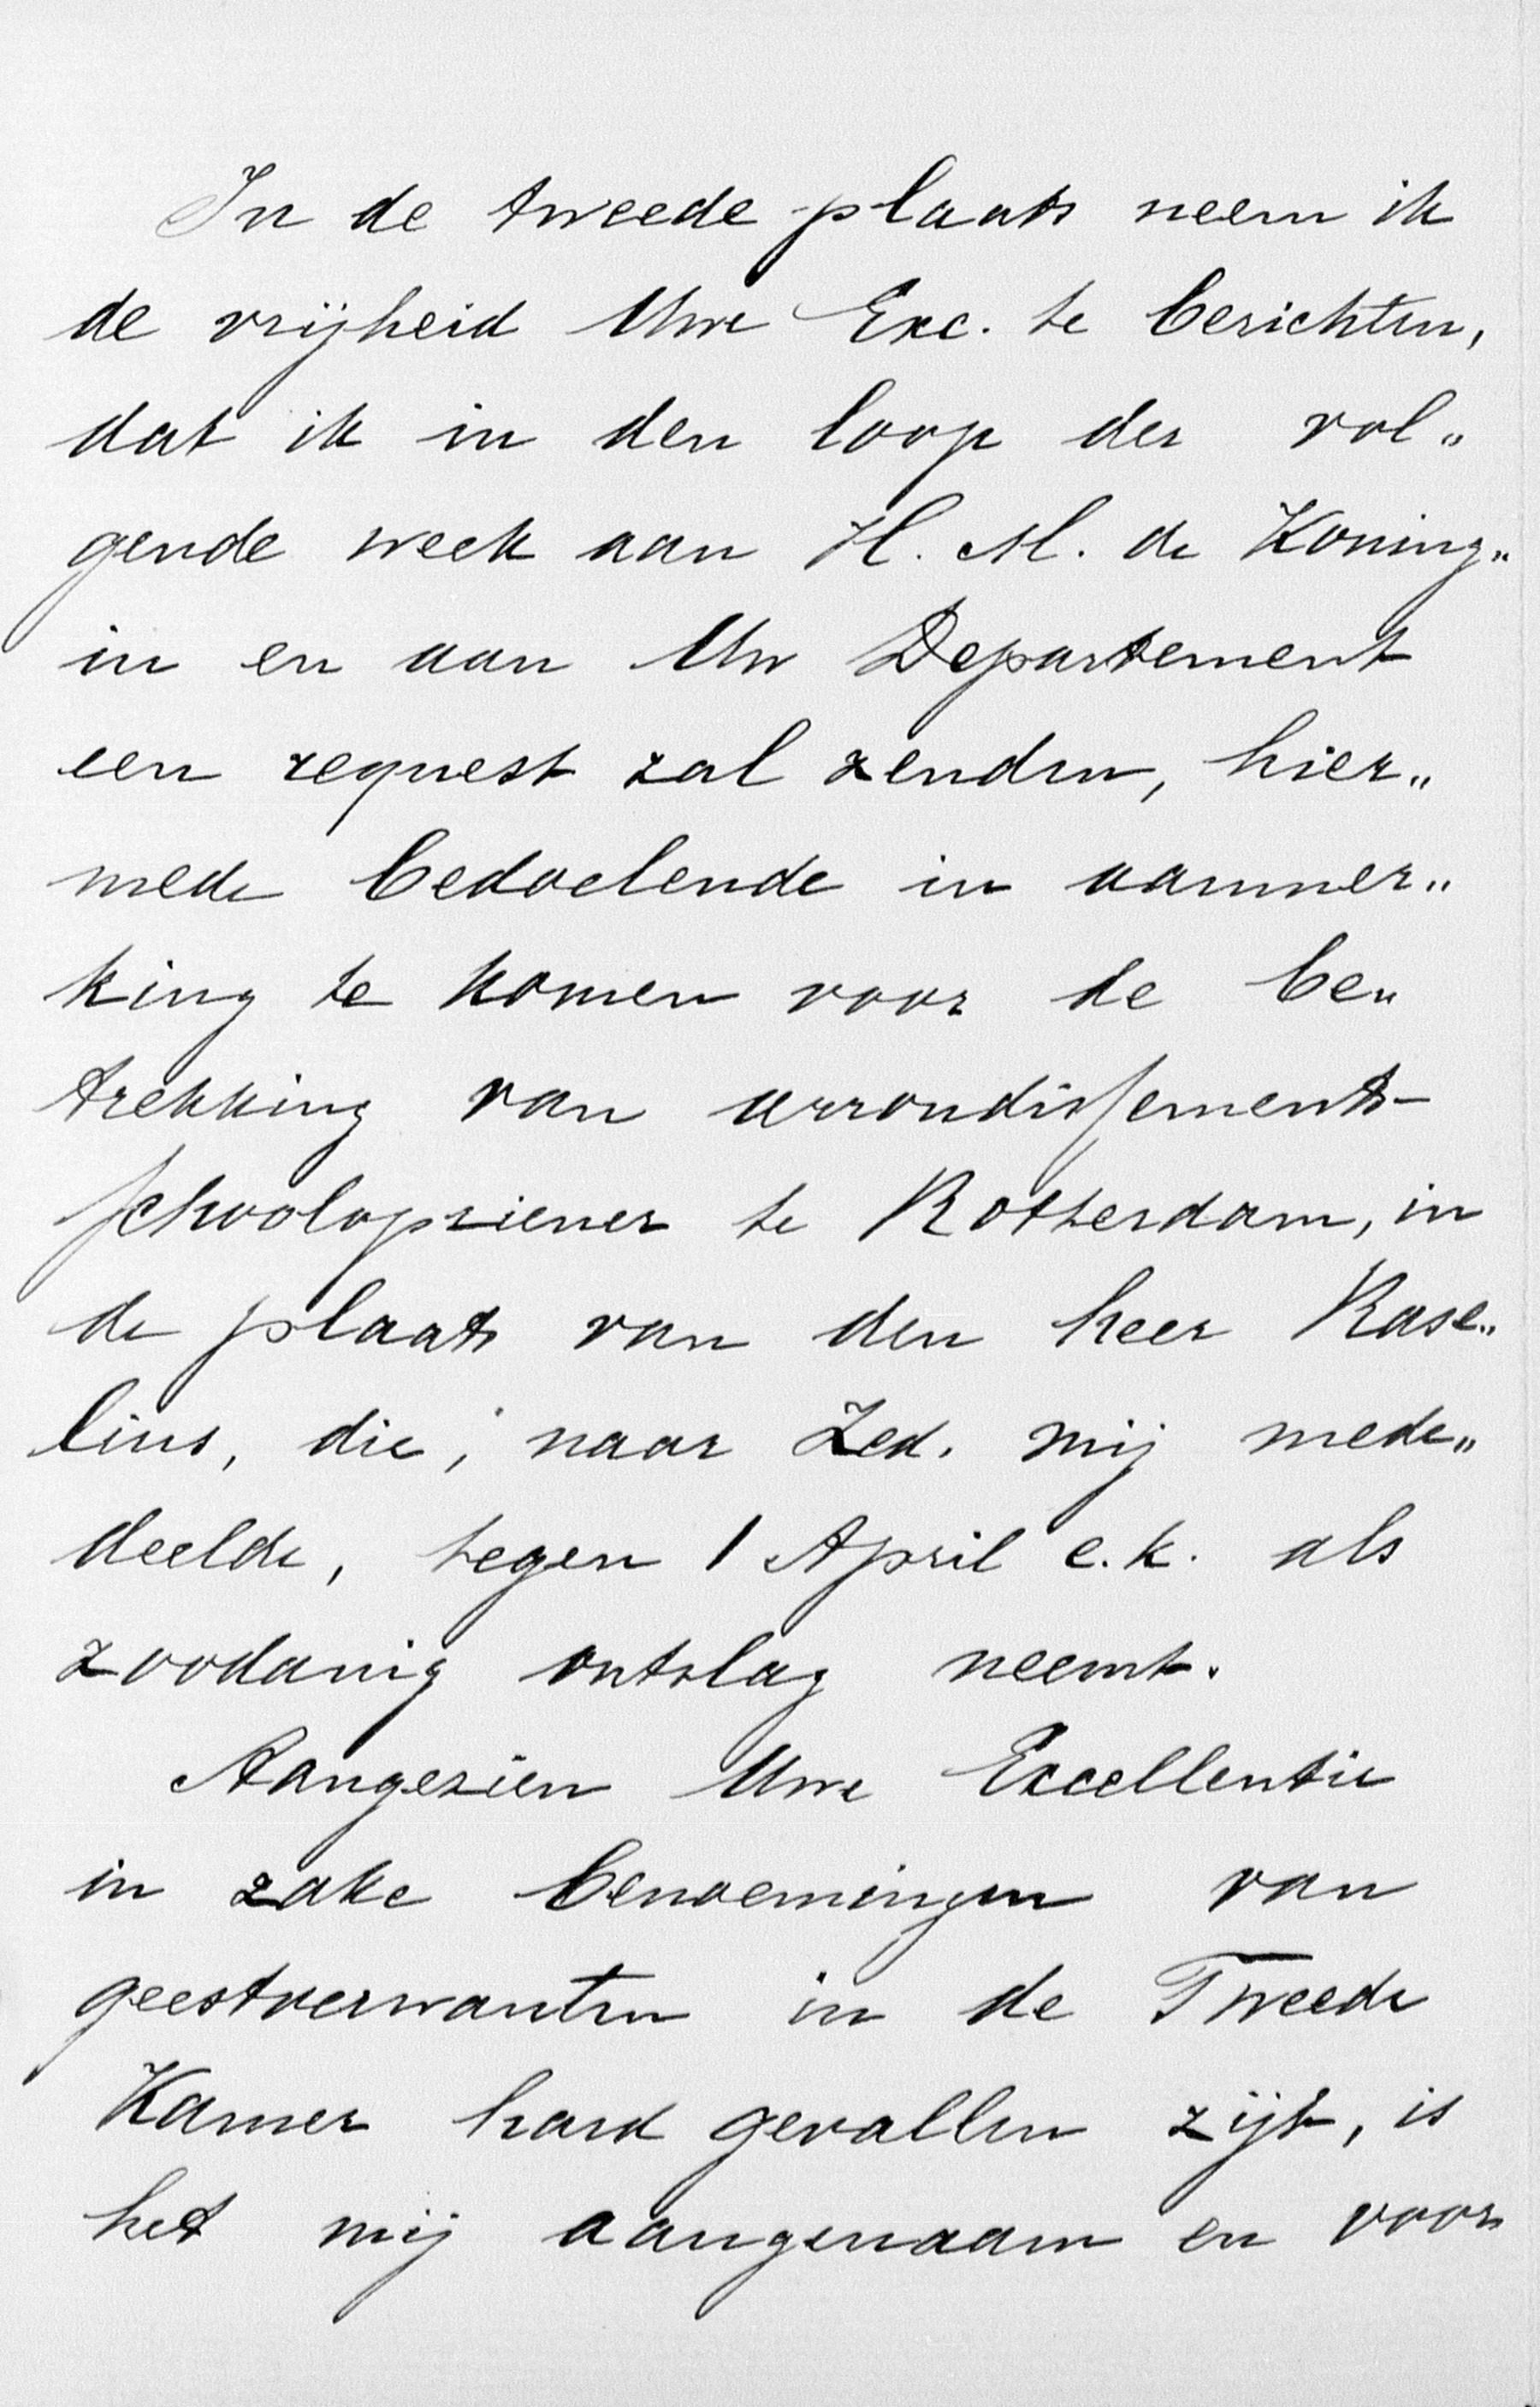 In de tweede plaats neem ik
de vrijheid Uwe Exc. te berichten,
dat ik in den loop der vol„
gende week aan H. M. de Koning„
in en aan Uw Departement
een request zal zenden, hier„
mede bedoelende in aanmer„
king te komen voor de be„
trekking van arrondissements-
schoolopziener te Rotterdam, in
de plaats van den heer Rase„
lius, die, naar Zed. mij mede„
deelde, tegen 1 April e.k. als
zoodanig ontslag neemt.
Aangezien Uwe Excellentie
in zake benoemingen van
geestverwanten in de Tweede
Kamer hard gevallen zijt, is
het mij aangenaam en voor